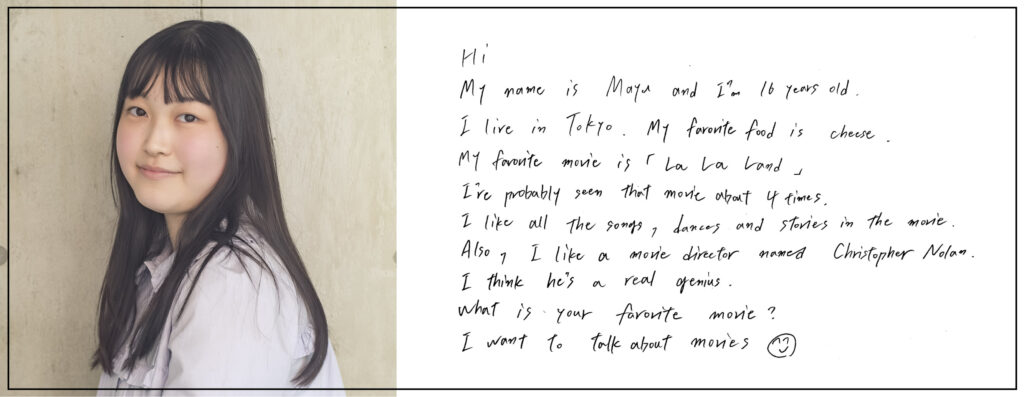 Hi
My name is Mayu and I'm 16 years old.
I live in Tokyo. My favorite food is cheese.
My favorite movie is「La La Land」
I've probably seen that movie about 4 times.
I like all the songs, dances and stories in the movie.
Also, I like a movie director named Christopher Nolan.
I think he's a real genius.
What is your favorite movie?
I want to talk about movies